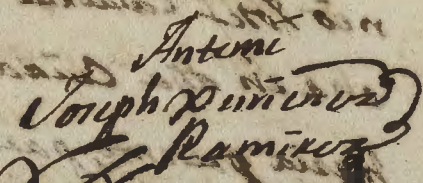 Antemi
Joseph Ximenez
Ramirez